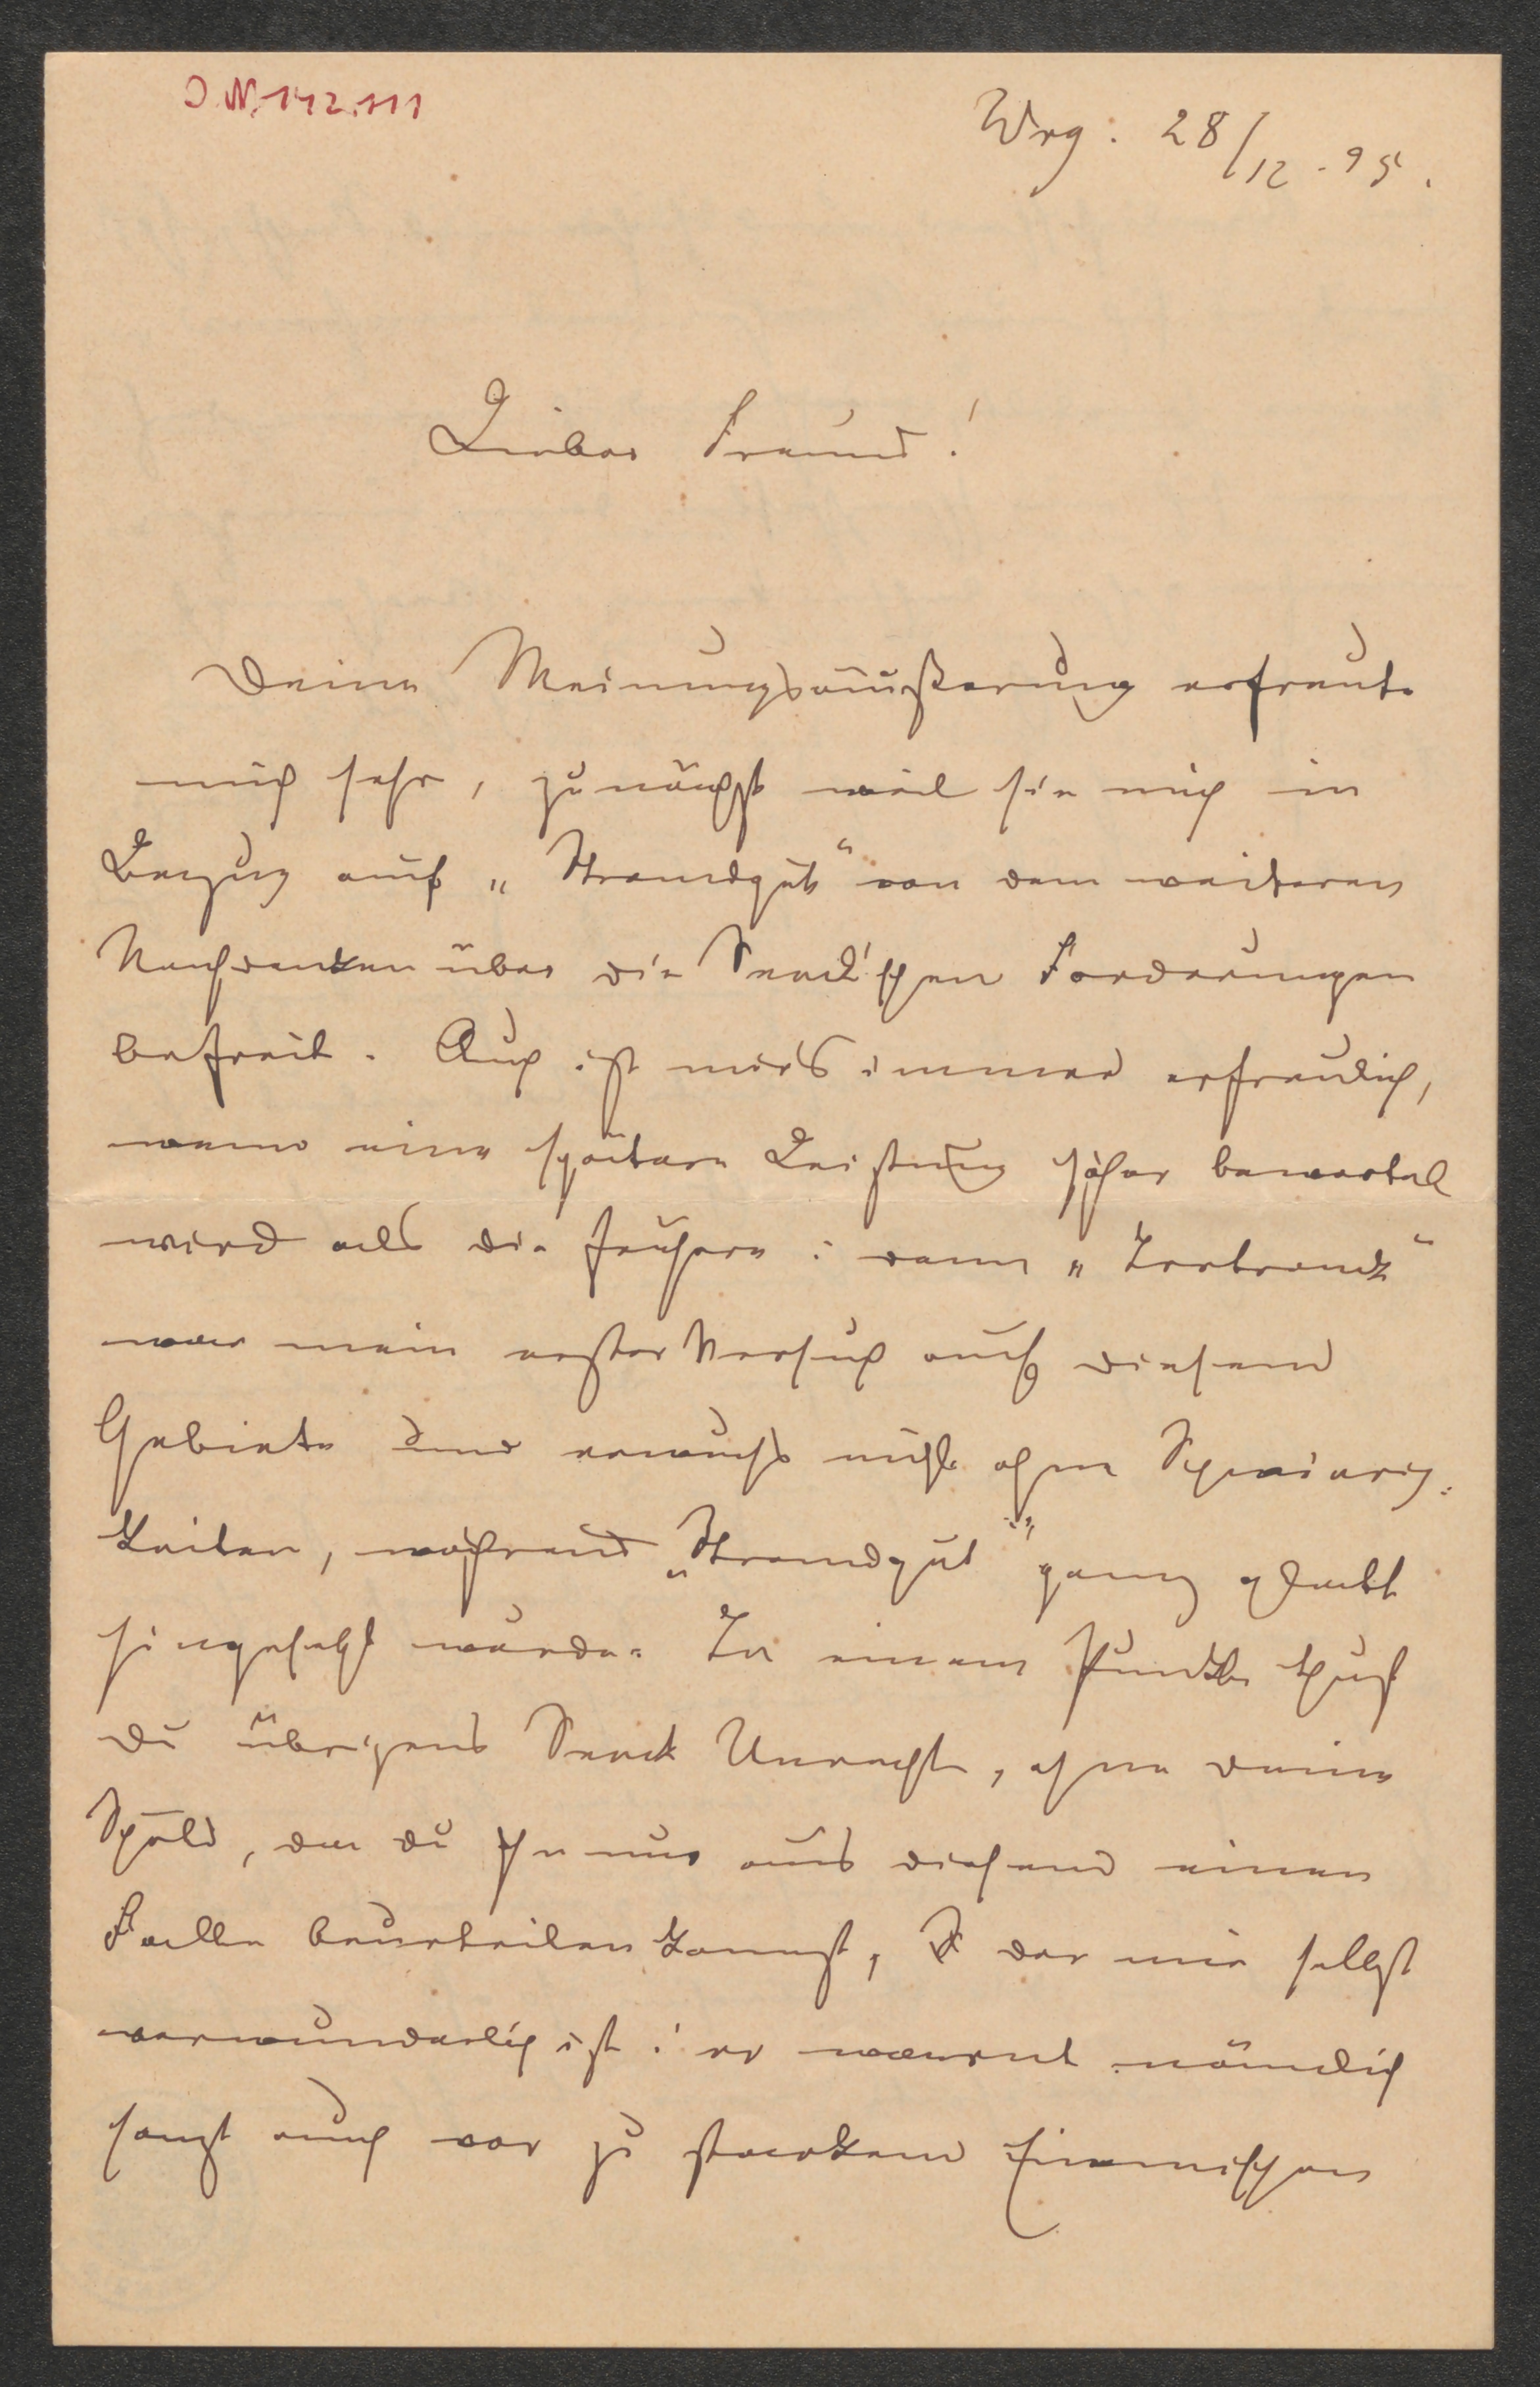 I.N. 142.111
Wrg: 28/12. 95.
Lieber Freund!
Deine Meinungsäußerung erfreute
mich sehr, zunächst weil sie mich in
Bezug auf „Strandgut“ von dem weiteren
Nachdenken über die Senck'schen Forderungen
befreit. Auch ist mirs immer erfreulich,
wenn eine spätere Leistung höher bewertet
wird als die frühere: denn „Irrtrank“
war mein erster Versuch auf diesem
Gebiete und erwuchs nicht ohne Schwierig-
keiten, während „Strandgut“ ganz glatt
hingesetzt wurde. In einem Punkte thust
du übrigens Senck Unrecht, ohne deine
Schuld, da du ihn nur aus diesem einen
Falle beurteilen kannst, der mir selbst
verwunderlich ist: er warnt nämlich
sonst auch vor zu starkem Einmischen